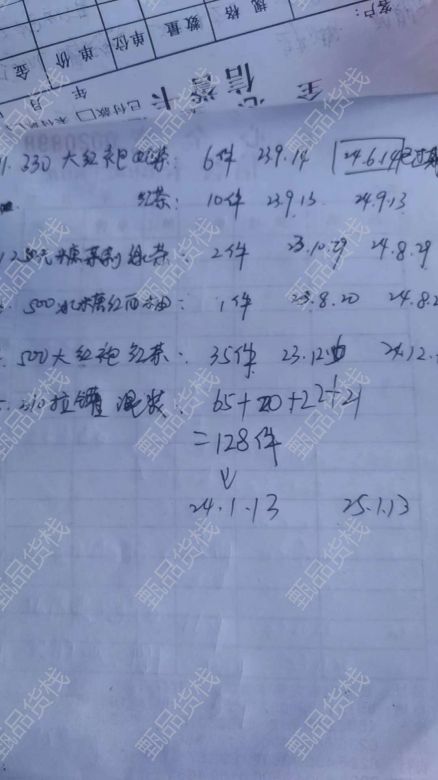 客户：
规格
数量
单位
单价
金
年 月
已付款□ 未付
金卡
信誉
1. 330 大红袍 红茶： 6件 23.9.14 24.6.14已过期
红茶： 10件 23.9.13 24.9.13
绿茶： 2件 23.10.29 24.8.29
500冰糖红西柚： 1件 23.8.20 24.8.2
500大红袍 红茶： 35件 23.12 24.12.
310拉罐 混装： 65+20+22+21
=128件
24.1.13 25.1.13
甄品货栈